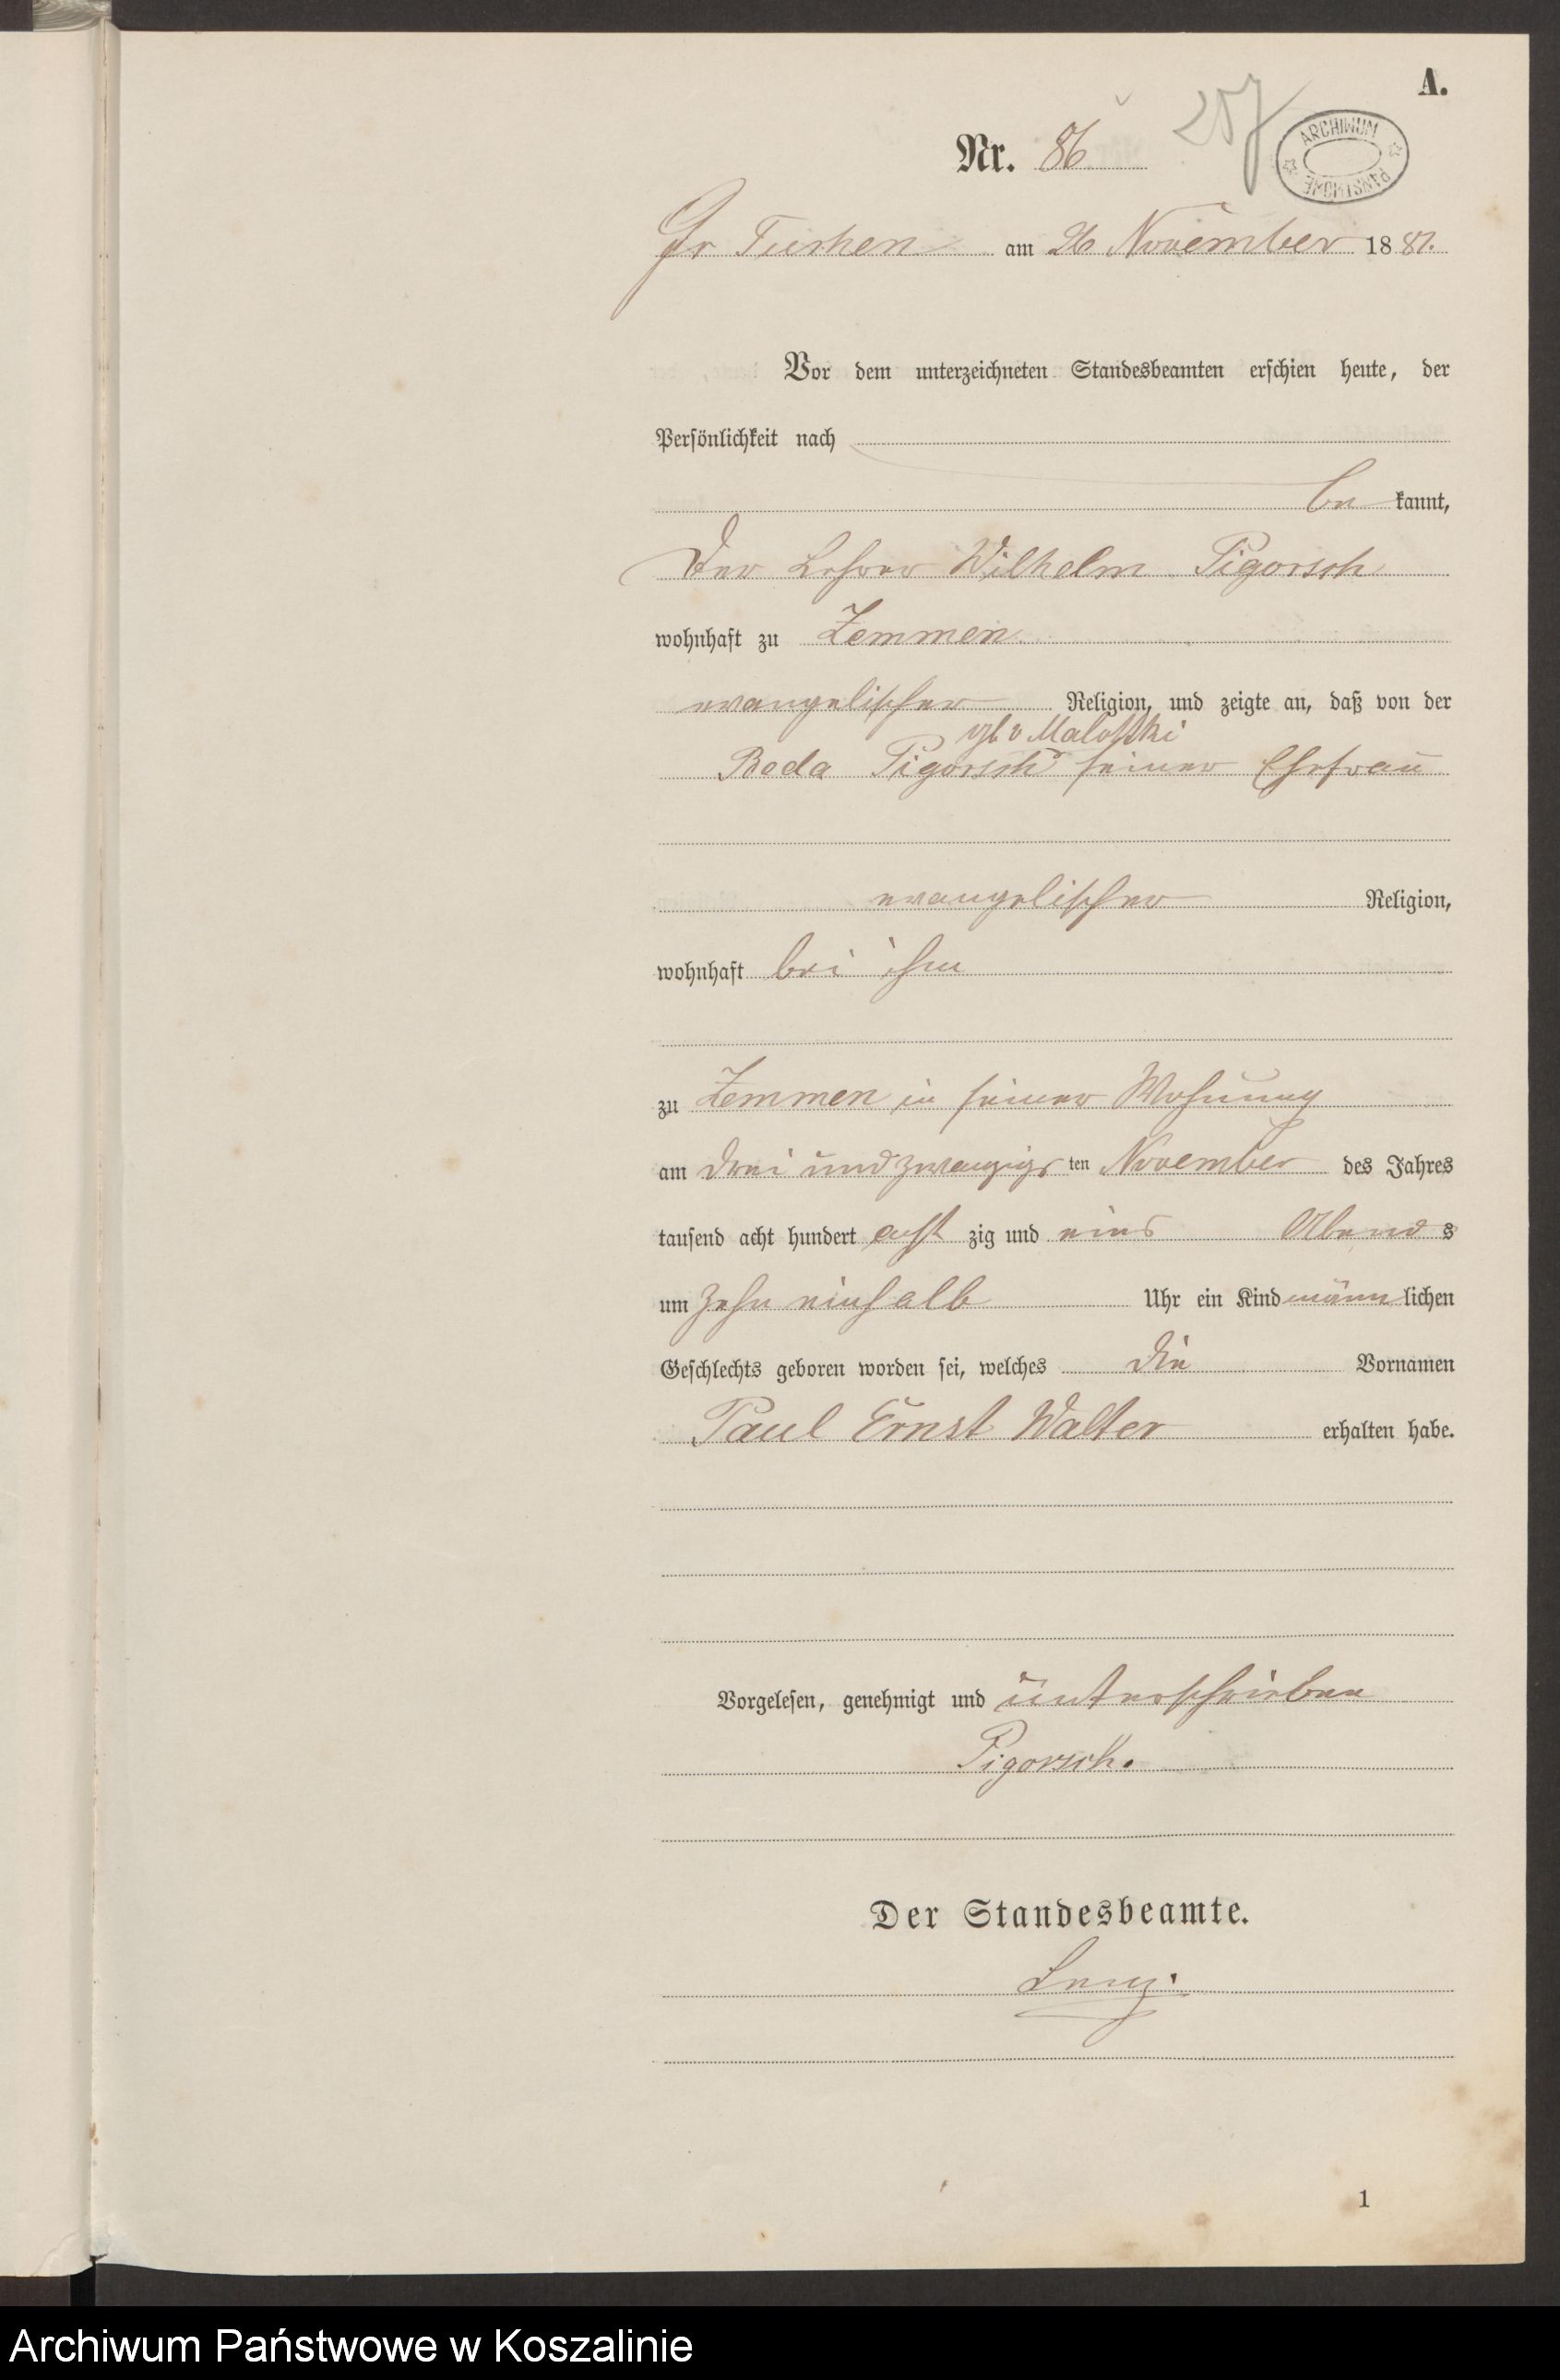 A.
Nr. 86
257
ARCHIWUM PAŃSTWOWE
Gr Tuchen am 26 November 1881.
Vor dem unterzeichneten Standesbeamten erschien heute, der
Persönlichkeit nach
be kannt,
Der Lehrer Wilhelm Pigorsch
wohnhaft zu Zemmen
evangelischer Religion, und zeigte an, daß von der
gb v Malottki
Beda Pigorsch seiner Ehefrau
evangelischer Religion,
wohnhaft bei ihm
zu Zemmen in seiner Wohnung
am drei und zwanzigsten November des Jahres
tausend acht hundert acht zig und eins Abend s
um zehn einhalb Uhr ein Kind männlichen
Geschlechts geboren worden sei, welches die Vornamen
Paul Ernst Walter erhalten habe.
Vorgelesen, genehmigt und unterschrieben
Pigorsch.
Der Standesbeamte.
Lenz.
1
Archiwum Państwowe w Koszalinie